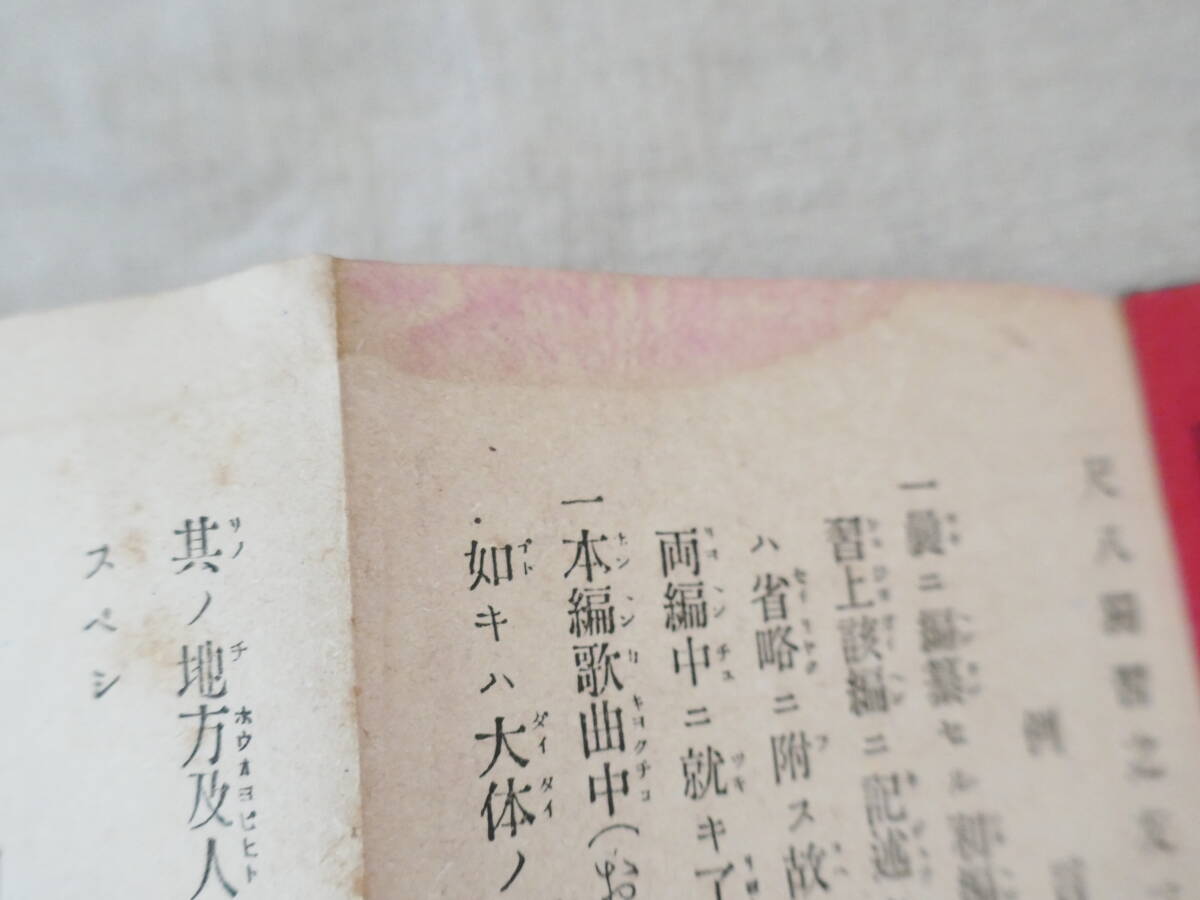 尺八獨習之友
例言
一曩ニ編纂セル初編
習上該編ニ記述
ハ省略ニ附ス故
両編中ニ就キ了
一本編歌曲中(お
如キハ大体ノ
其ノ地方及人
スベシ